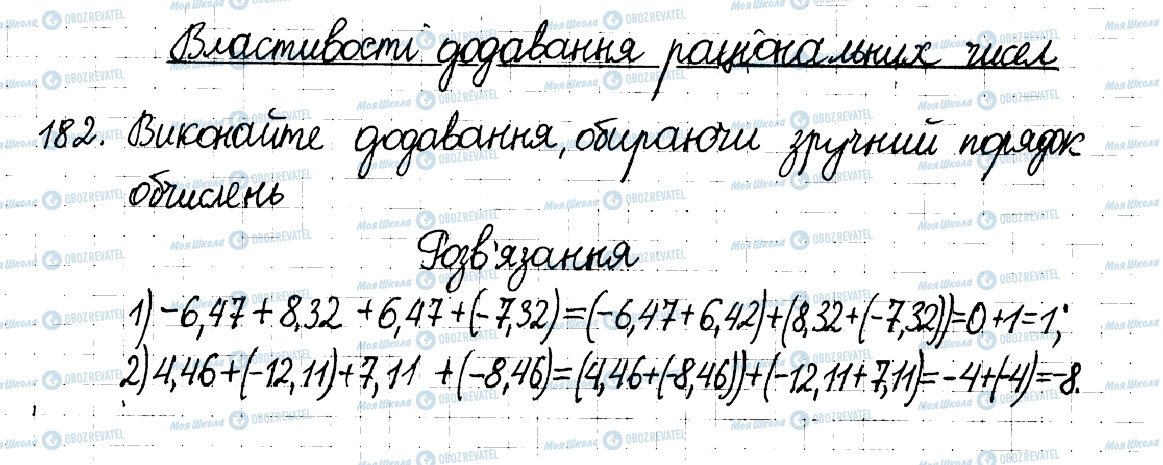 Властивості додавання раціональних чисел
182. Виконайте додавання, обираючи зручний порядок
обчислень
Розв'язання
1) -6,47 + 8,32 + 6,47 + (-7,32) = (-6,47 + 6,42) + (8,32 + (-7,32)) = 0 + 1 = 1;
2) 4,46 + (-12,11) + 7,11 + (-8,46) = (4,46 + (-8,46)) + (-12,11 + 7,11) = -4 + (-4) = -8.